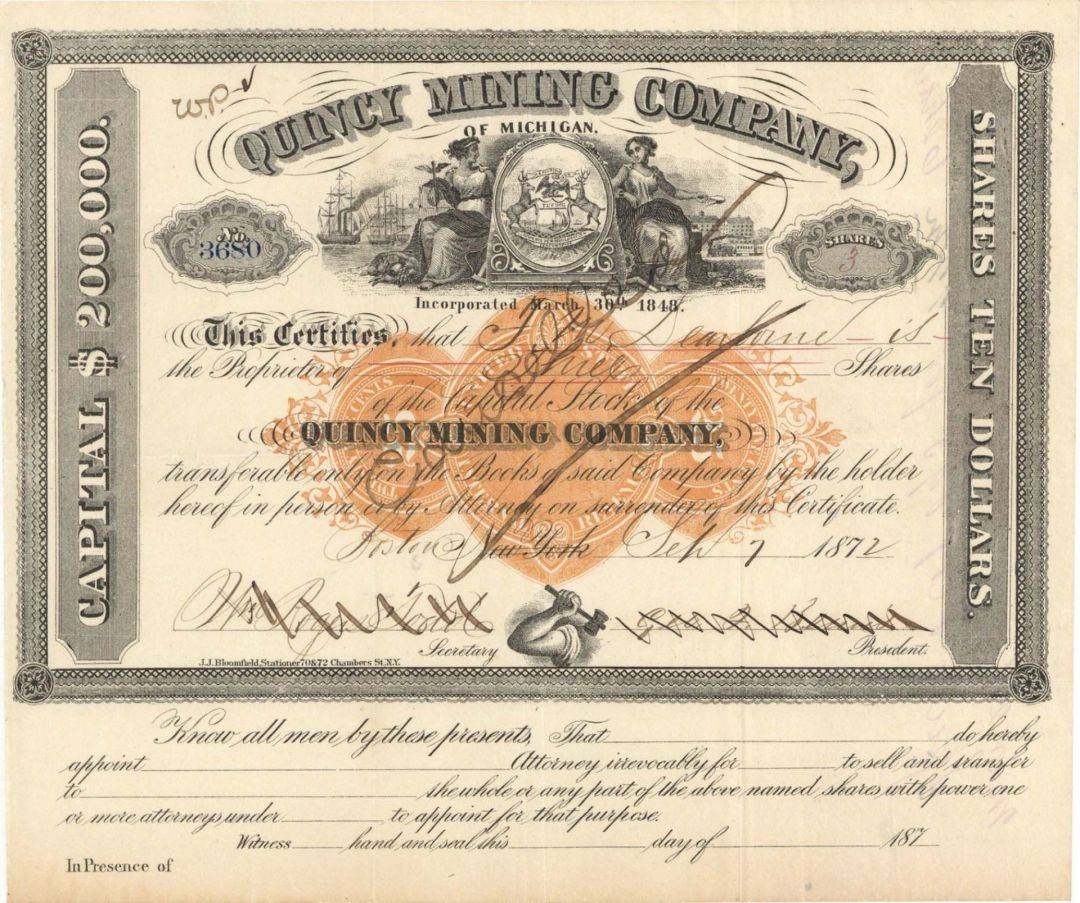 W.P.
QUINCY MINING COMPANY,
OF MICHIGAN.
CAPITAL $ 200,000.
SHARES TEN DOLLARS.
No. 3680
SHARES 3
Incorporated March 30th 1848.
This Certifies, that is
the Proprietor of Three Shares
of the Capital Stock of the
QUINCY MINING COMPANY,
transferable only on the Books of said Company by the holder
hereof in person or by Attorney on surrender of this Certificate.
Boston New York Sep 7 1872
Secretary President.
J.J. Bloomfield, Stationer 70 & 72 Chambers St. N.Y.
Know all men by these presents, That do hereby
appoint Attorney irrevocably for to sell and transfer
to the whole or any part of the above named shares, with power one
or more attorneys under to appoint for that purpose.
Witness hand and seal this day of 187
In Presence of